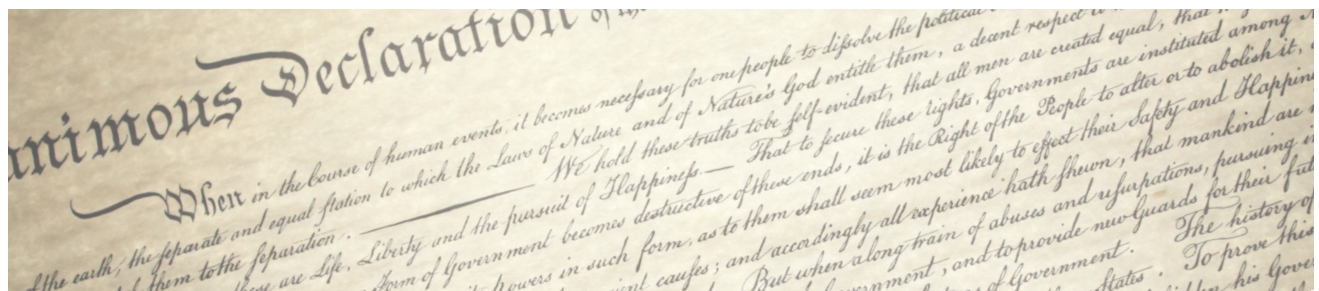 animous Declaration of the
When in the Course of human events, it becomes necessary for one people to dissolve the political
of the earth, the separate and equal station to which the Laws of Nature and of Nature's God entitle them, a decent respect to
them to the separation. — We hold these truths to be self-evident, that all men are created equal, that
these are Life, Liberty and the pursuit of Happiness. — That to secure these rights, Governments are instituted among
Form of Government becomes destructive of these ends, it is the Right of the People to alter or to abolish it,
powers in such form, as to them shall seem most likely to effect their Safety and Happiness
causes; and accordingly all experience hath shewn, that mankind are
But when a long train of abuses and usurpations, pursuing
Government, and to provide new Guards for their
of Government. The history of
States. To prove this
his